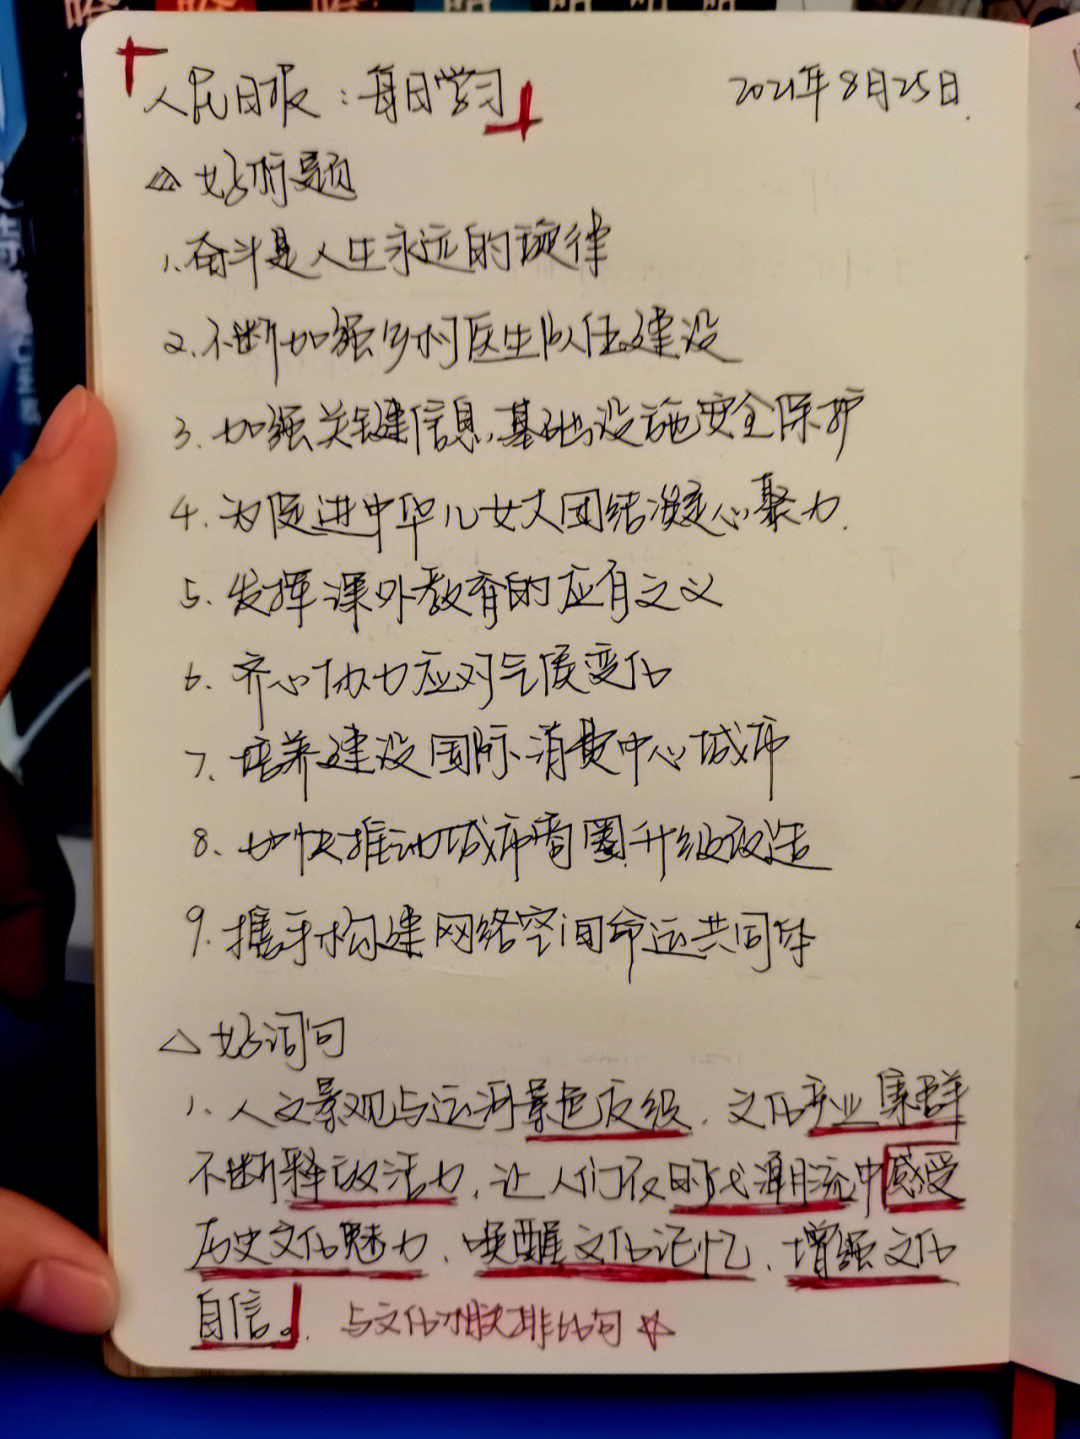 人民日报：每日学习
2021年8月25日.
△好标题
1.奋斗是人生永远的旋律
2.不断加强乡村医生队伍建设
3.加强关键信息基础设施安全保护
4.为促进中华儿女大团结凝心聚力.
5.发挥课外教育的应有之义
6.齐心协力应对气候变化
7.培养建设国际消费中心城市
8.加快推动城市商圈升级改造
9.携手构建网络空间命运共同体
△好词句
1.人文景观与运河景色 ,文化产业集群
不断释放活力,让人们在时代潮流中感受
历史文化魅力,唤醒文化记忆,增强文化
自信。
与文化 排比句☆